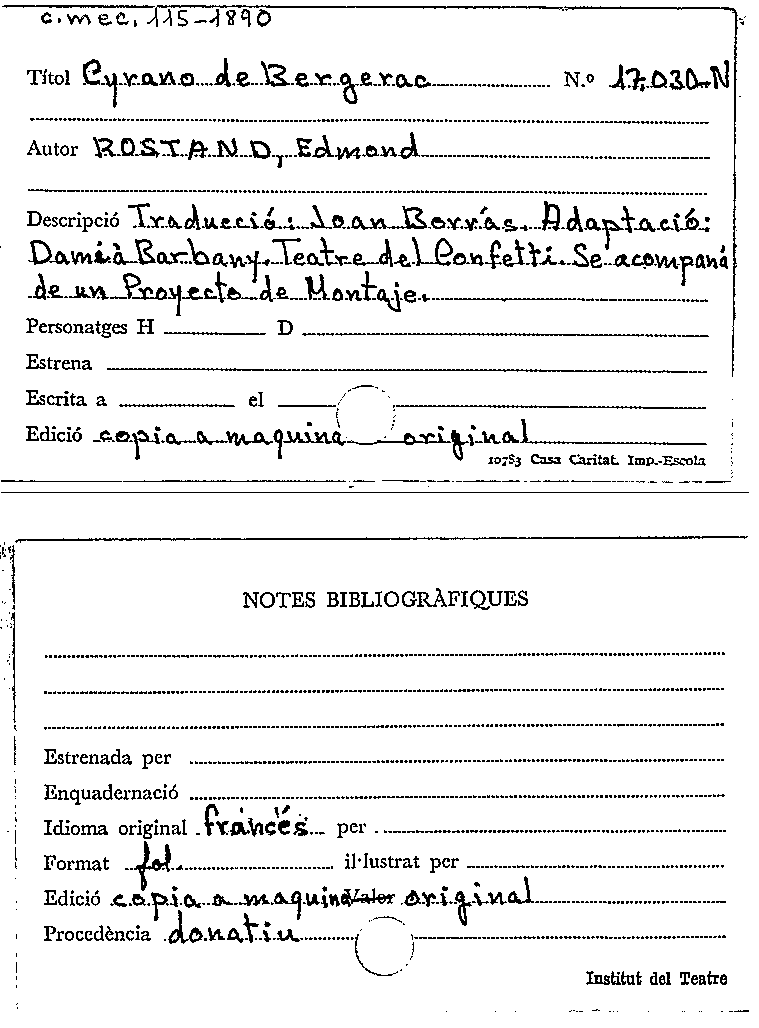 c.mec. 115-1890
Títol Cyrano de Bergerac N.º 17.030-N
Autor ROSTAND, Edmond
Descripció Traducció: Joan Borrás. Adaptació:
Damià Barbany. Teatre del Confetti. Se acompaná
de un Proyecto de Montaje.
Personatges H D
Estrena
Escrita a el
Edició copia a maquina original
10783 Casa Caritat. Imp.-Escola
NOTES BIBLIOGRÀFIQUES
Estrenada per
Enquadernació
Idioma original francés per
Format fol. il·lustrat per
Edició copia a maquina Valor original
Procedència donatiu
Institut del Teatre